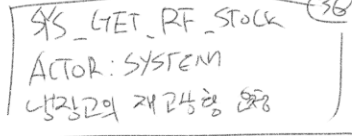 36
SYS_GET_RF_STOCK
ACTOR: SYSTEM
냉장고의 재고상황 요청